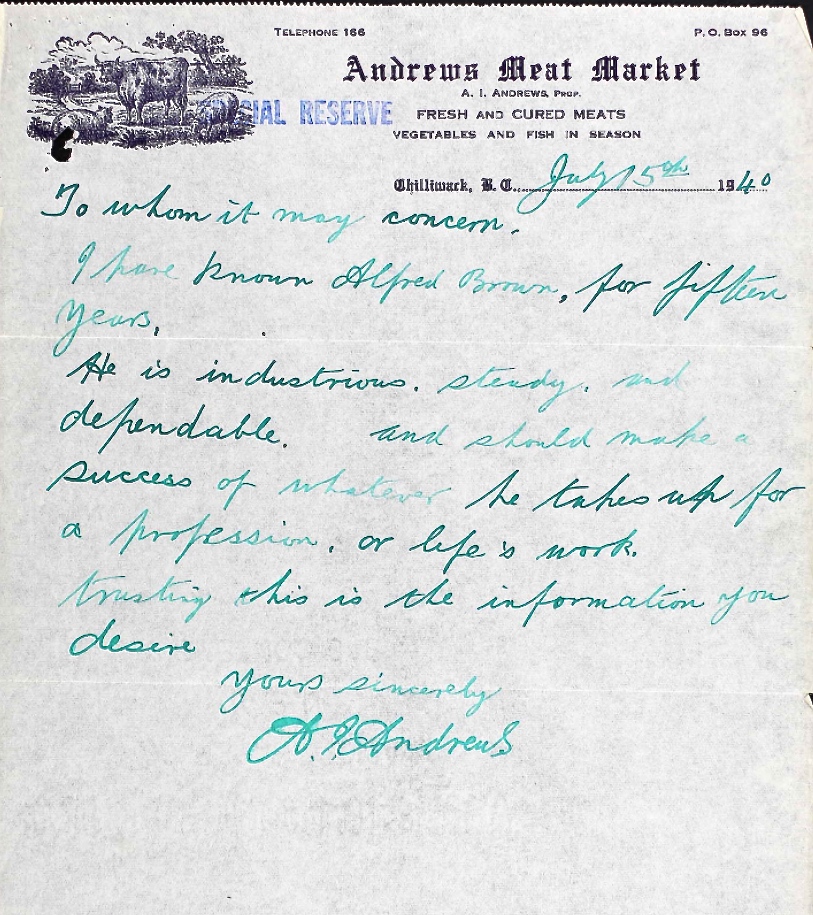 TELEPHONE 166
P.O. BOX 96
Andrews Meat Market
A. I. ANDREWS, PROP.
SPECIAL RESERVE
FRESH AND CURED MEATS
VEGETABLES AND FISH IN SEASON
Chilliwack, B.C. July 15th 1940
To whom it may concern.
I have known Alfred Brown, for fifteen
years,
He is industrious. steady. and
dependable. and should make a
success of whatever he takes up for
a profession, or life's work.
trusting this is the information you
desire
yours sincerely
A. I. Andrews